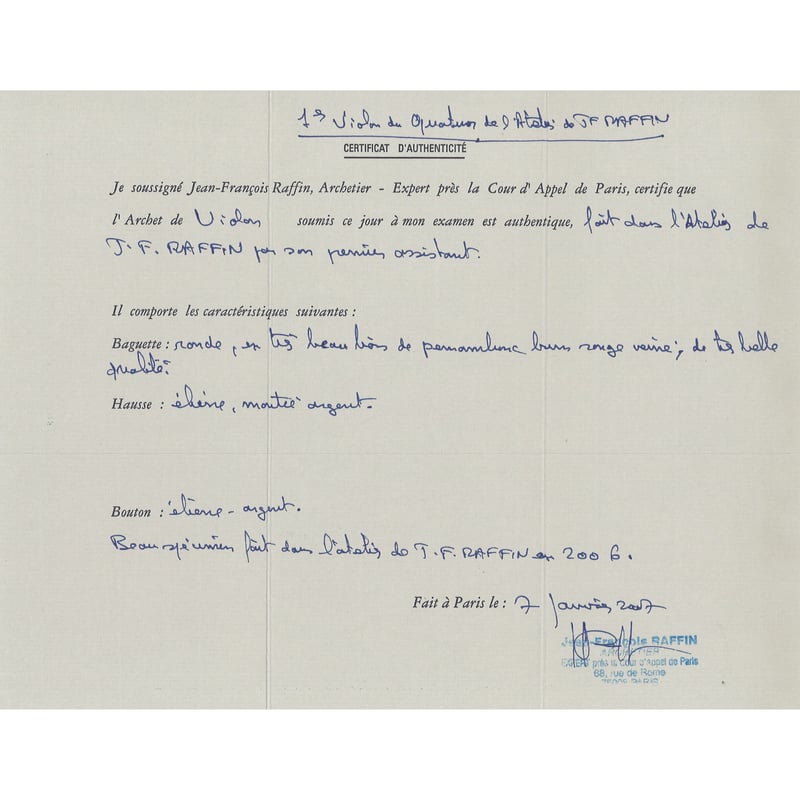 1er Violon du Quatuor de l'Atelier de JF RAFFIN
CERTIFICAT D'AUTHENTICITÉ
Je soussigné Jean-François Raffin, Archetier - Expert près la Cour d'Appel de Paris, certifie que
l'Archet de Violon soumis ce jour à mon examen est authentique, fait dans l'Atelier de
J. F. RAFFIN par son premier assistant.
Il comporte les caractéristiques suivantes :
Baguette : ronde, en très beau bois de pernambouc brun rouge veiné, de très belle
qualité.
Hausse : ébène, montée argent.
Bouton : ébène - argent.
Beau spécimen fait dans l'atelier de J.F. RAFFIN en 2006.
Fait à Paris le : 7 Janvier 2007
Jean-François RAFFIN
ARCHETIER
EXPERT près la Cour d'Appel de Paris
68, rue de Rome
75008 PARIS